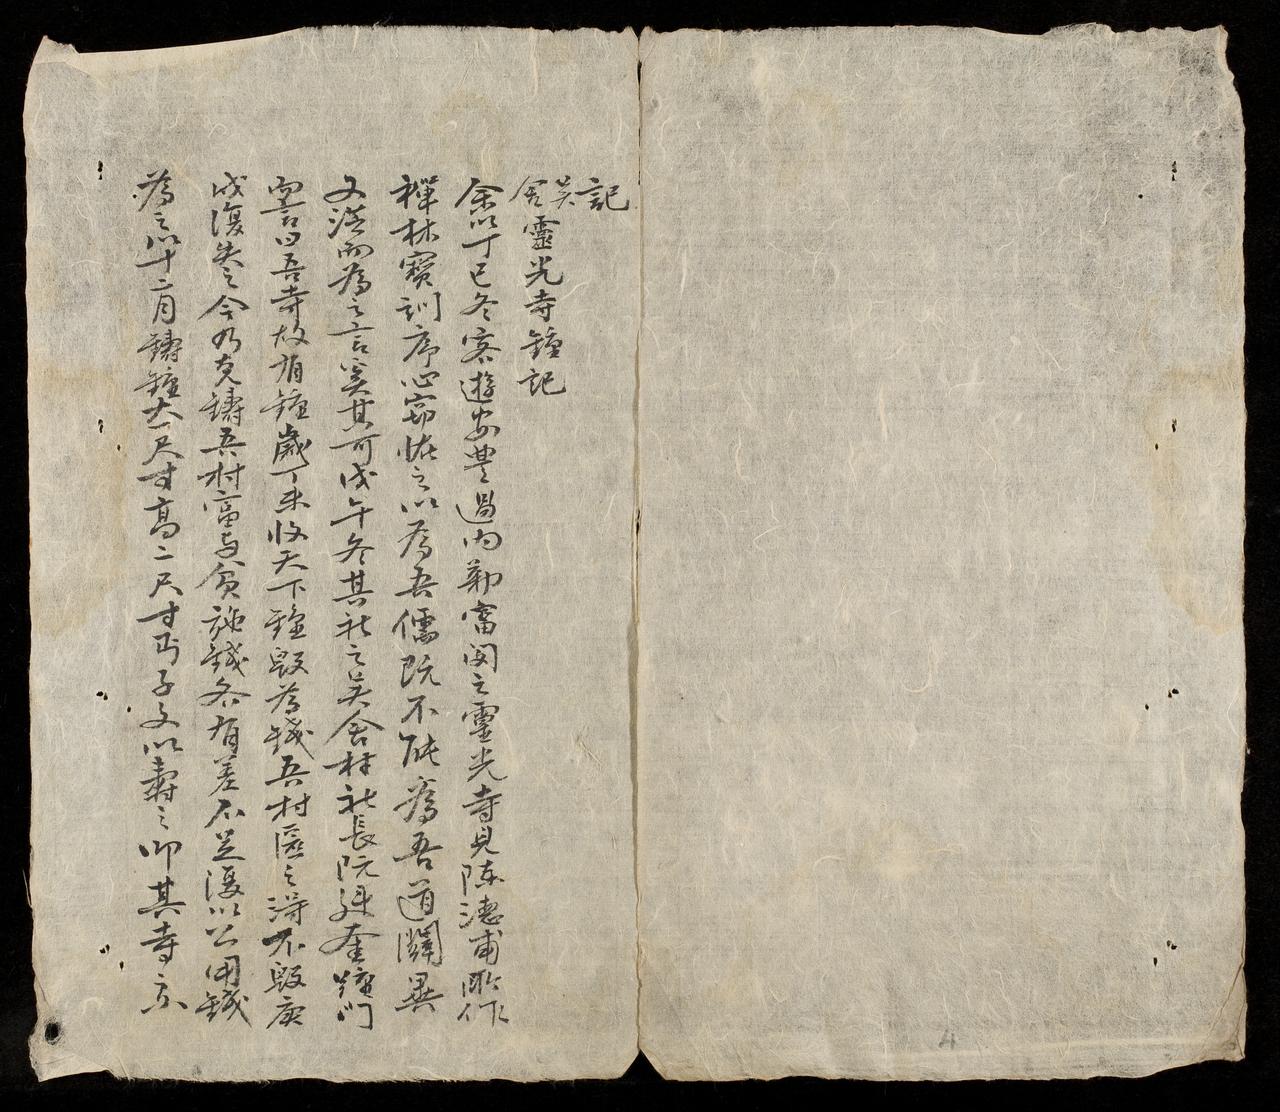 記
吴舍靈光寺鐘記
余以丁巳冬客遊安豊過内勒富閔之靈光寺見陈德甫所作
禪林寳訓序心窃恠之以為吾儒既不能為吾道闢異
又從而為之言奚其可戊午冬其社之吴舍村社長阮廷奎踵門
而言曰吾寺故有鐘歲丁未收天下鐘毀為錢吾村匿之得不毀庚
戌復失之今乃克鑄吾村富与貧施錢各有差不足復以公用錢
為之以十二月鑄鐘大一尺寸高二尺寸丐子文以壽之叩其寺京